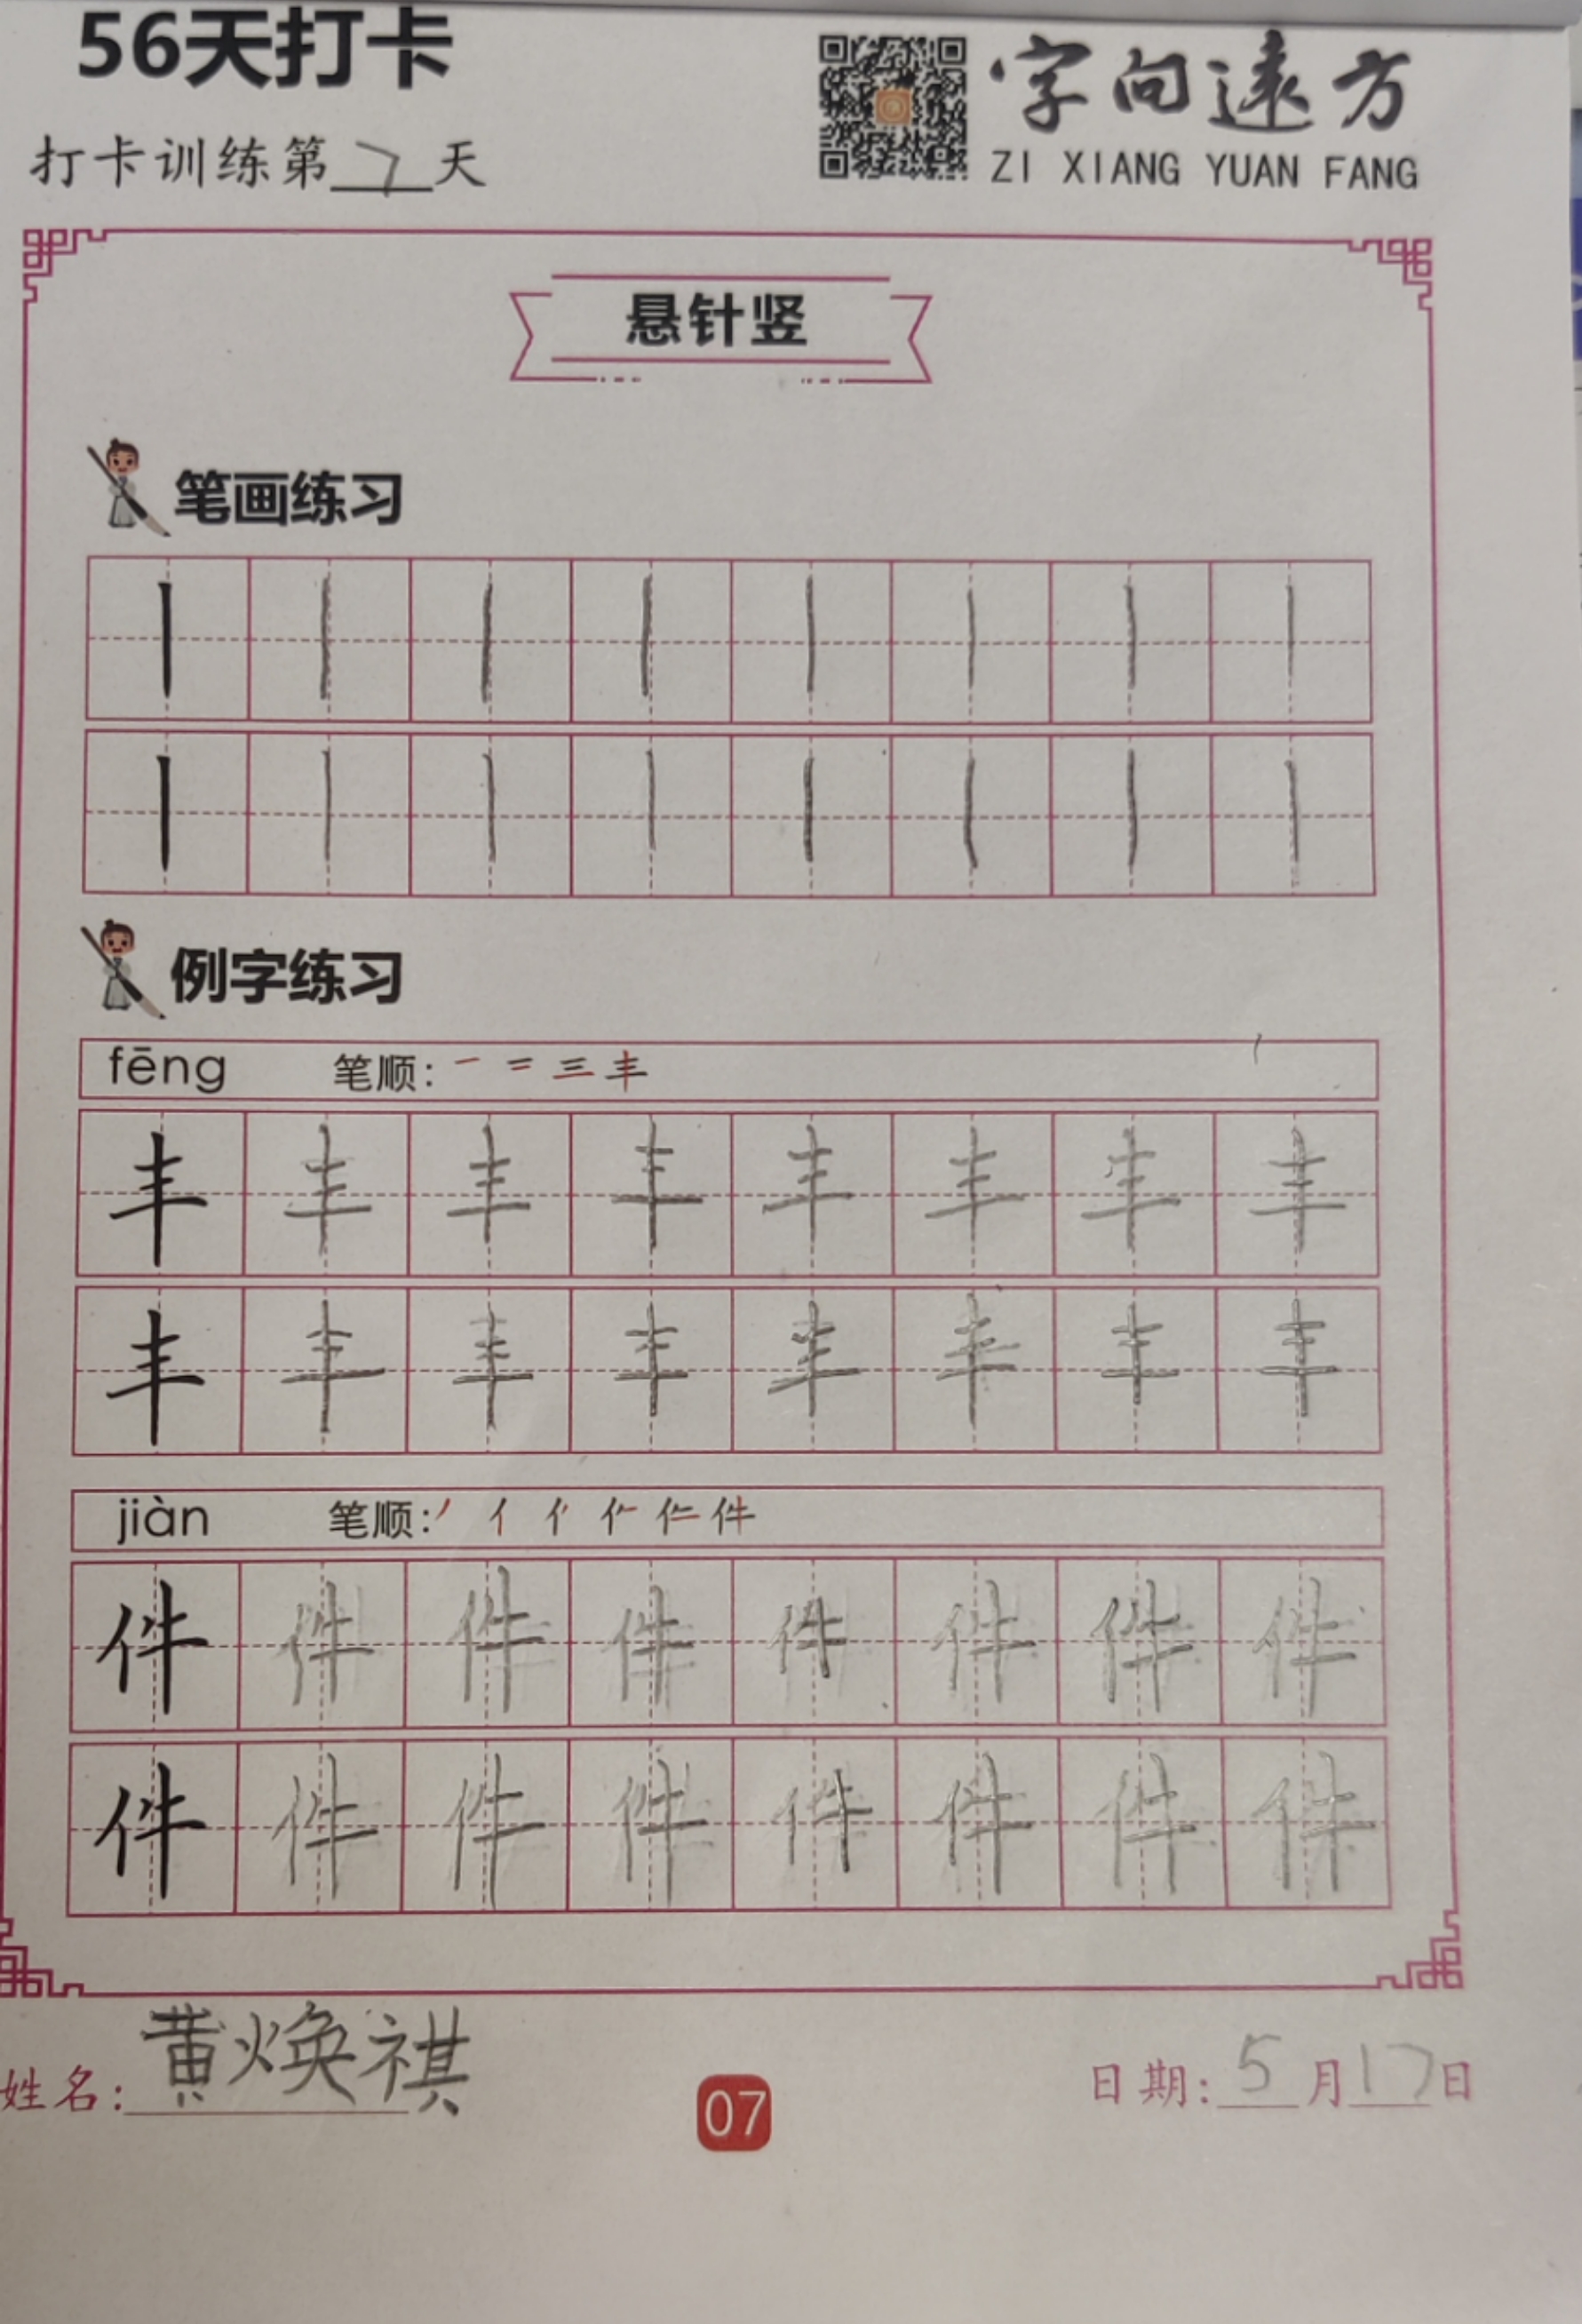 56天打卡
字向遠方
打卡训练第7天
ZI XIANG YUAN FANG
悬针竖
笔画练习
丨 丨 丨 丨 丨 丨 丨 丨
丨 丨 丨 丨 丨 丨 丨 丨
例字练习
fēng 笔顺: 一 二 三 丰
丰 丰 丰 丰 丰 丰 丰 丰
丰 丰 丰 丰 丰 丰 丰 丰
jiàn 笔顺: 件
件 件 件 件 件 件 件 件
件 件 件 件 件 件 件 件
姓名: 黄焕祺
07
日期: 5月17日